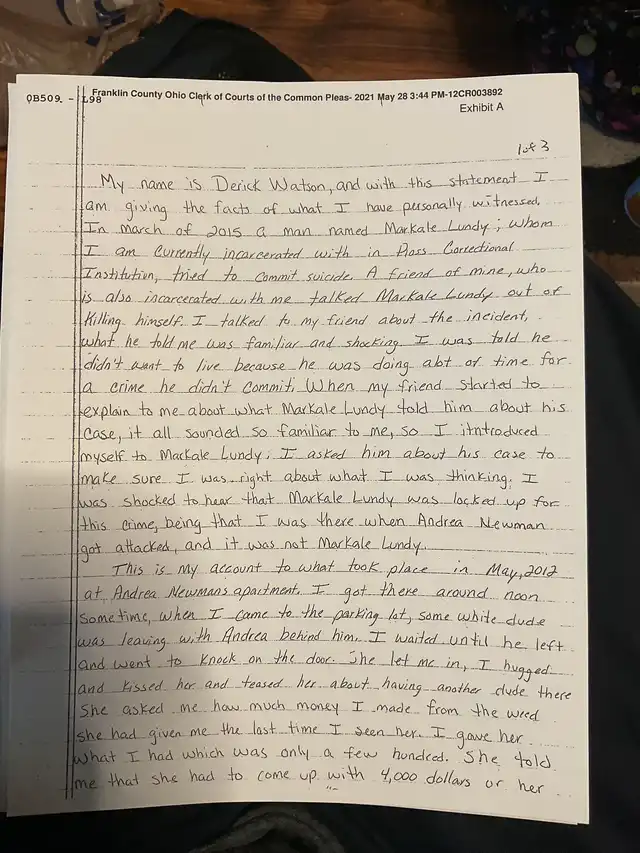 OB509. - L98
Franklin County Ohio Clerk of Courts of the Common Pleas- 2021 May 28 3:44 PM-12CR003892
Exhibit A
1 of 3
My name is Derick Watson, and with this statement I
am giving the facts of what I have personally witnessed.
In march of 2015 a man named Markale Lundy; whom
I am currently incarcerated with in Ross Correctional
Institution, tried to commit suicide. A friend of mine, who
is also incarcerated with me talked Markale Lundy out of
killing himself. I talked to my friend about the incident,
what he told me was familiar and shocking. I was told he
didn't want to live because he was doing abt of time for
a crime he didn't commit. When my friend started to
explain to me about what Markale Lundy told him about his
case, it all sounded so familiar to me, so I itntroduced
myself to Markale Lundy. I asked him about his case to
make sure I was right about what I was thinking. I
was shocked to hear that Markale Lundy was locked up for
this crime, being that I was there when Andrea Newman
got attacked, and it was not Markale Lundy.
This is my account to what took place in May, 2012
at Andrea Newmans apartment. I got there around noon
sometime, when I came to the parking lot, some white dude
was leaving with Andrea behind him. I waited until he left
and went to knock on the door. She let me in, I hugged
and kissed her and teased her about having another dude there
She asked me how much money I made from the weed
she had given me the last time I seen her. I gave her
what I had which was only a few hundred. She told
me that she had to come up with 4,000 dollars or her